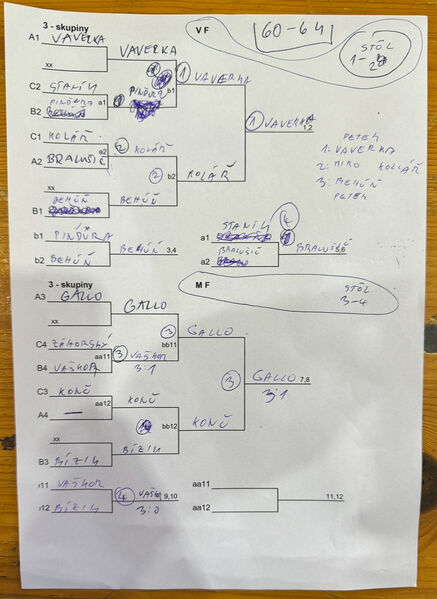 3 - skupiny
V F
60-64
STÔL
A1 VAVERKA
VAVERKA
xx
1 VAVERKA
b1
C2 STANÍK
PINDURA a1
PINDURA
B2
1 VAVERKA
1,2
C1 KOLÁŘ
a2
2 KOLÁŘ
A2 BRALUŠIČ
2
b2
KOLÁŘ
xx
BEHÚŇ
BEHÚŇ
B1
PETER
1: VAVERKA
2: MIRO KOLLÁR
3: BEHÚŇ
PETER
b1 PINDURA
BEHÚŇ 3,4
b2 BEHÚŇ
STANÍK
4
a1
BRALUŠIČ 5,6
BRALUŠIČ
a2
3 - skupiny
M F
STÔL
3-4
A3 GALLO
GALLO
xx
3
GALLO
bb11
C4 ZÁHORSKÝ
aa11
3 VAŠKOR
3:1
B4 VAŠKOR
3
GALLO 7,8
3:1
C3 KONČ
aa12
KONČ
A4 —
bb12
KONČ
xx
BÍZIK
B3 BÍZIK
VAŠKOR
4 VAŠKOR 9,10
3:0
BÍZIK
aa11
11,12
aa12